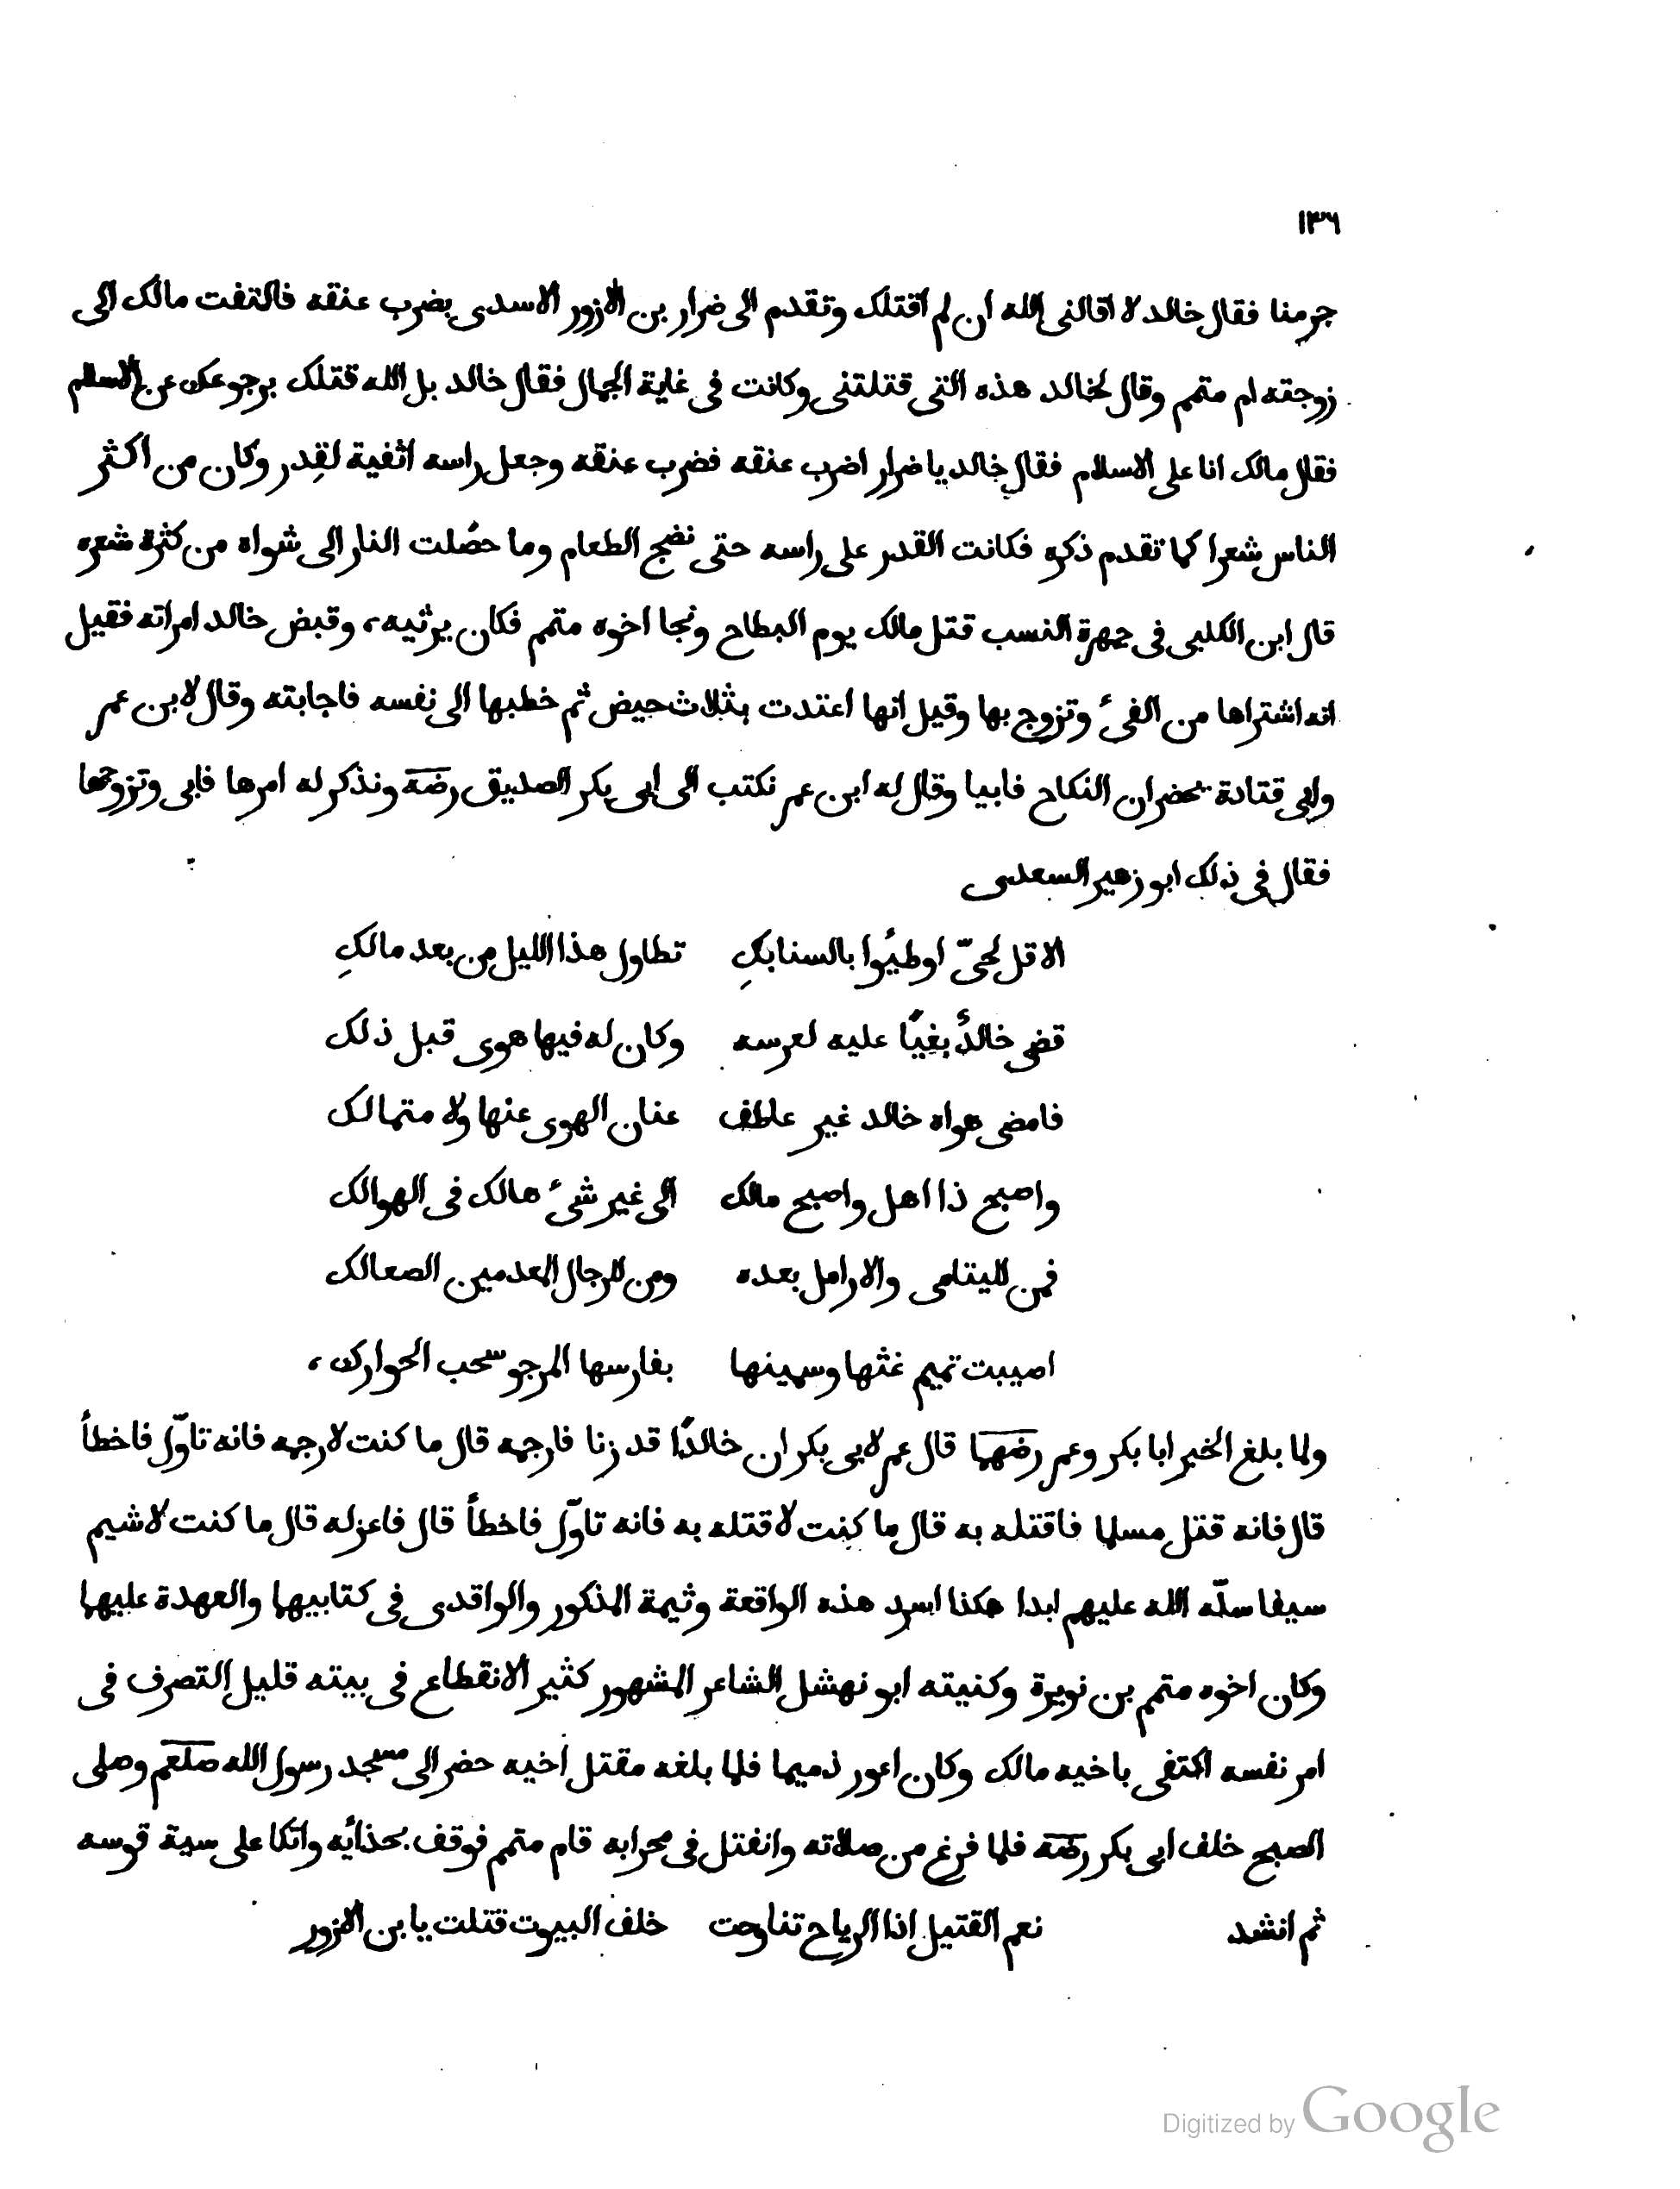 ١٣٦
جرمنا فقال خالد لا اقالنى الله ان لم اقتلك وتقدم الى ضرار بن الازور الاسدى بضرب عنقه فالتفت مالك الى
زوجته ام متمم وقال لخالد هذه التى قتلتنى وكانت فى غاية الجمال فقال خالد بل الله قتلك برجوعك عن الاسلام
فقال مالك انا على الاسلام فقال خالد يا ضرار اضرب عنقه فضرب عنقه وجعل راسه اثفية لقِدر وكان من اكثر
الناس شعرا كما تقدم ذكره فكانت القدر على راسه حتى نضج الطعام وما خصُلت النار الى شواه من كثرة شعره
قال ابن الكلبى فى جمهرة النسب قتل مالك يوم البطاح ونجا اخوه متمم فكان يرثيه، وقبض خالد امراته فقيل
انه اشتراها من الفئ وتزوج بها وقيل انها اعتدت بثلاث حيض ثم خطبها الى نفسه فاجابته وقال لابن عمر
وابى قتادة يحضران النكاح فابيا وقال له ابن عمر نكتب الى ابى بكر الصديق رضه ونذكر له امرها فابى وتزوجها
فقال فى ذلك ابو زهير السعدى
الا قل لحىّ اوطيُوا بالسنابكِ تطاول هذا الليل من بعد مالكِ
قضى خالدٌ بغيًا عليه لعرسه وكان له فيها هوى قبل ذلك
فامضى هواه خالد غير عاطف عنان الهوى عنها ولا متمالك
واصبح ذا اهل واصبح مالك الى غير شئ هالك فى الهوالك
فمن لليتامى والارامل بعده ومن للرجال المعدمين الصعالك
اصيبت تميم غثها وسمينها بفارسها المرجو سحب الحوارك،
ولما بلغ الخبر ابا بكر وعمر رضهما قال عمر لابى بكر ان خالدًا قد زنا فارجمه قال ما كنت لارجمه فانه تاوّل فاخطأ
قال فانه قتل مسلما فاقتله به قال ما كنت لاقتله به فانه تاوّل فاخطأ قال فاعزله قال ما كنت لاشيم
سيفا سلّه الله عليهم ابدا هكذا اسرد هذه الواقعة وثيمة المذكور والواقدى فى كتابيهما والعهدة عليهما
وكان اخوه متمم بن نويرة وكنيته ابو نهشل الشاعر المشهور كثير الانقطاع فى بيته قليل التصرف فى
امر نفسه اكتفى باخيه مالك وكان اعور ذميما فلما بلغه مقتل اخيه حضر الى مسجد رسول الله صلعم وصلى
الصبح خلف ابى بكر رضه فلما فرغ من صلاته وانفتل فى محرابه قام متمم فوقف بحذائه واتكا على سية قوسه
ثم انشد نعم القتيل اذا الرياح تناوحت خلف البيوت قتلت يا بن الازور
Digitized by Google